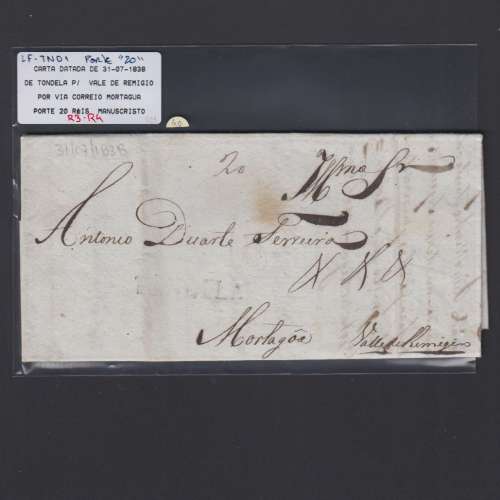 LF-TND1 Porte "20"
CARTA DATADA DE 31-07-1838
DE TONDELA P/ VALE DE REMIGIO
POR VIA CORREIO MORTAGUA
PORTE 20 REIS MANUSCRISTO
R3-R4
31/07/1838
20
Illmo Sr
Antonio Duarte Ferreira
Mortagôa
Valle de Remigio